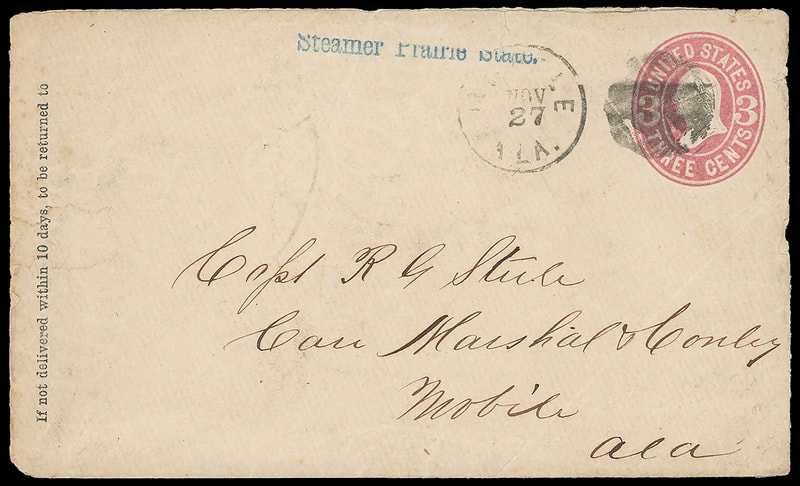 Steamer Prairie State.
NOV
27
ALA.
UNITED STATES
3 3
THREE CENTS
If not delivered within 10 days, to be returned to
Capt R G Stule
Care Marshal & Conley
Mobile
Ala